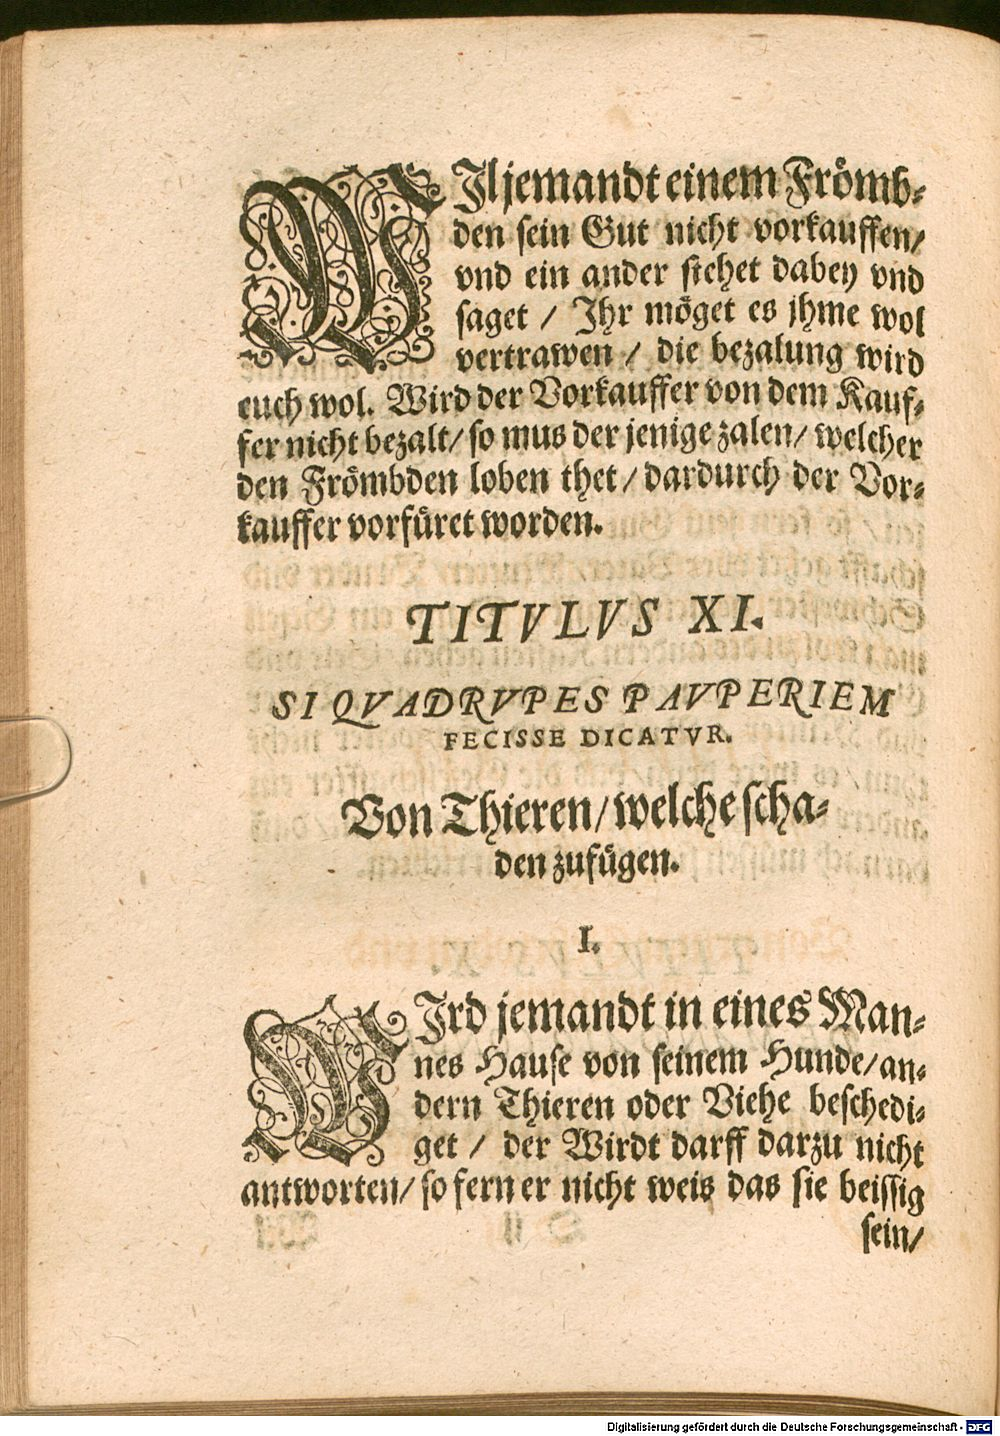 WJl jemandt einem Frömb-
den sein Gut nicht vorkauffen/
vnd ein ander stehet dabey vnd
saget / Jhr möget es jhme wol
vertrawen / die bezalung wird
euch wol. Wird der Vorkauffer von dem Kauf-
fer nicht bezalt/ so mus der jenige zalen/ welcher
den Frömbden loben thet/ dardurch der Vor-
kauffer vorfüret worden.
TITVLVS XI.
SI QVADRVPES PAVPERIEM
FECISSE DICATVR.
Von Thieren/ welche scha-
den zufügen.
I.
WJrd jemandt in eines Man-
nes Hause von seinem Hunde/ an-
dern Thieren oder Viehe beschedi-
get / der Wirdt darff darzu nicht
antworten/ so fern er nicht weis das sie beissig
sein/
Digitalisierung gefördert durch die Deutsche Forschungsgemeinschaft - DFG